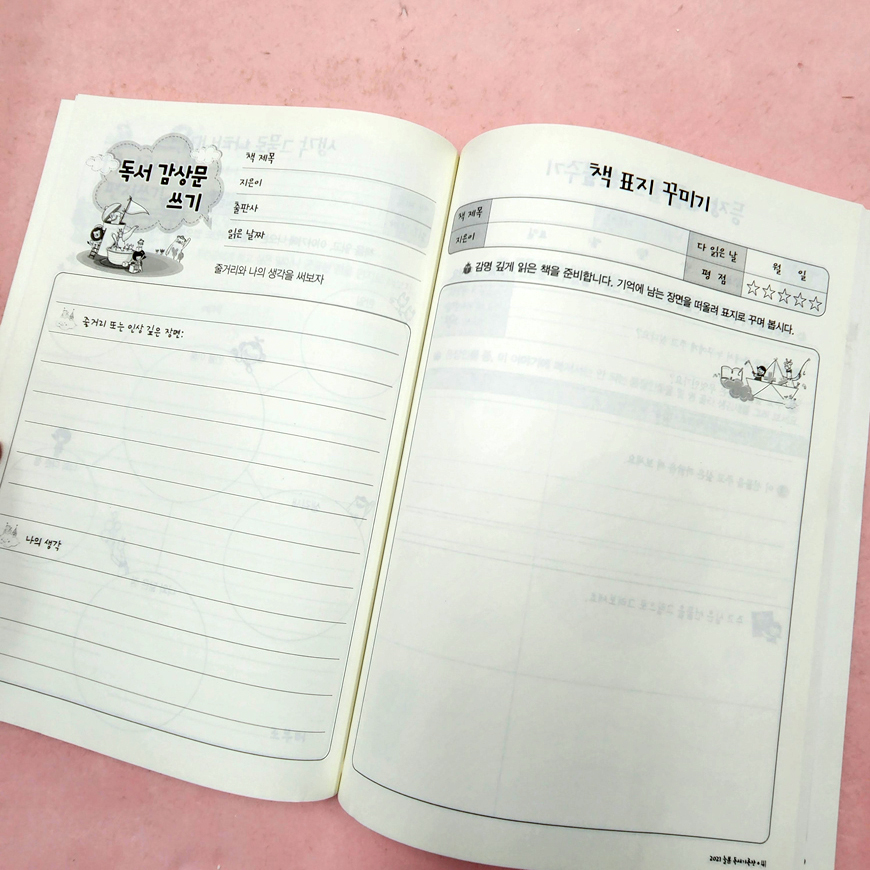 독서 감상문
쓰기
책 제목
지은이
출판사
읽은 날짜
줄거리와 나의 생각을 써보자
줄거리 또는 인상 깊은 장면:
나의 생각
책 표지 꾸미기
책 제목
다 읽은 날 월 일
지은이
평 점 ☆☆☆☆☆
감명 깊게 읽은 책을 준비합니다. 기억에 남는 장면을 떠올려 표지로 꾸며 봅시다.
2021
41